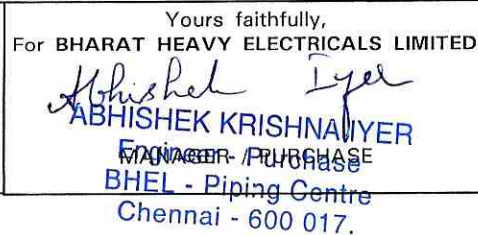 Yours faithfully,
For BHARAT HEAVY ELECTRICALS LIMITED
Abhishek Iyer
ABHISHEK KRISHNA IYER
Engineer - Purchase
MANAGER / PURCHASE
BHEL - Piping Centre
Chennai - 600 017.